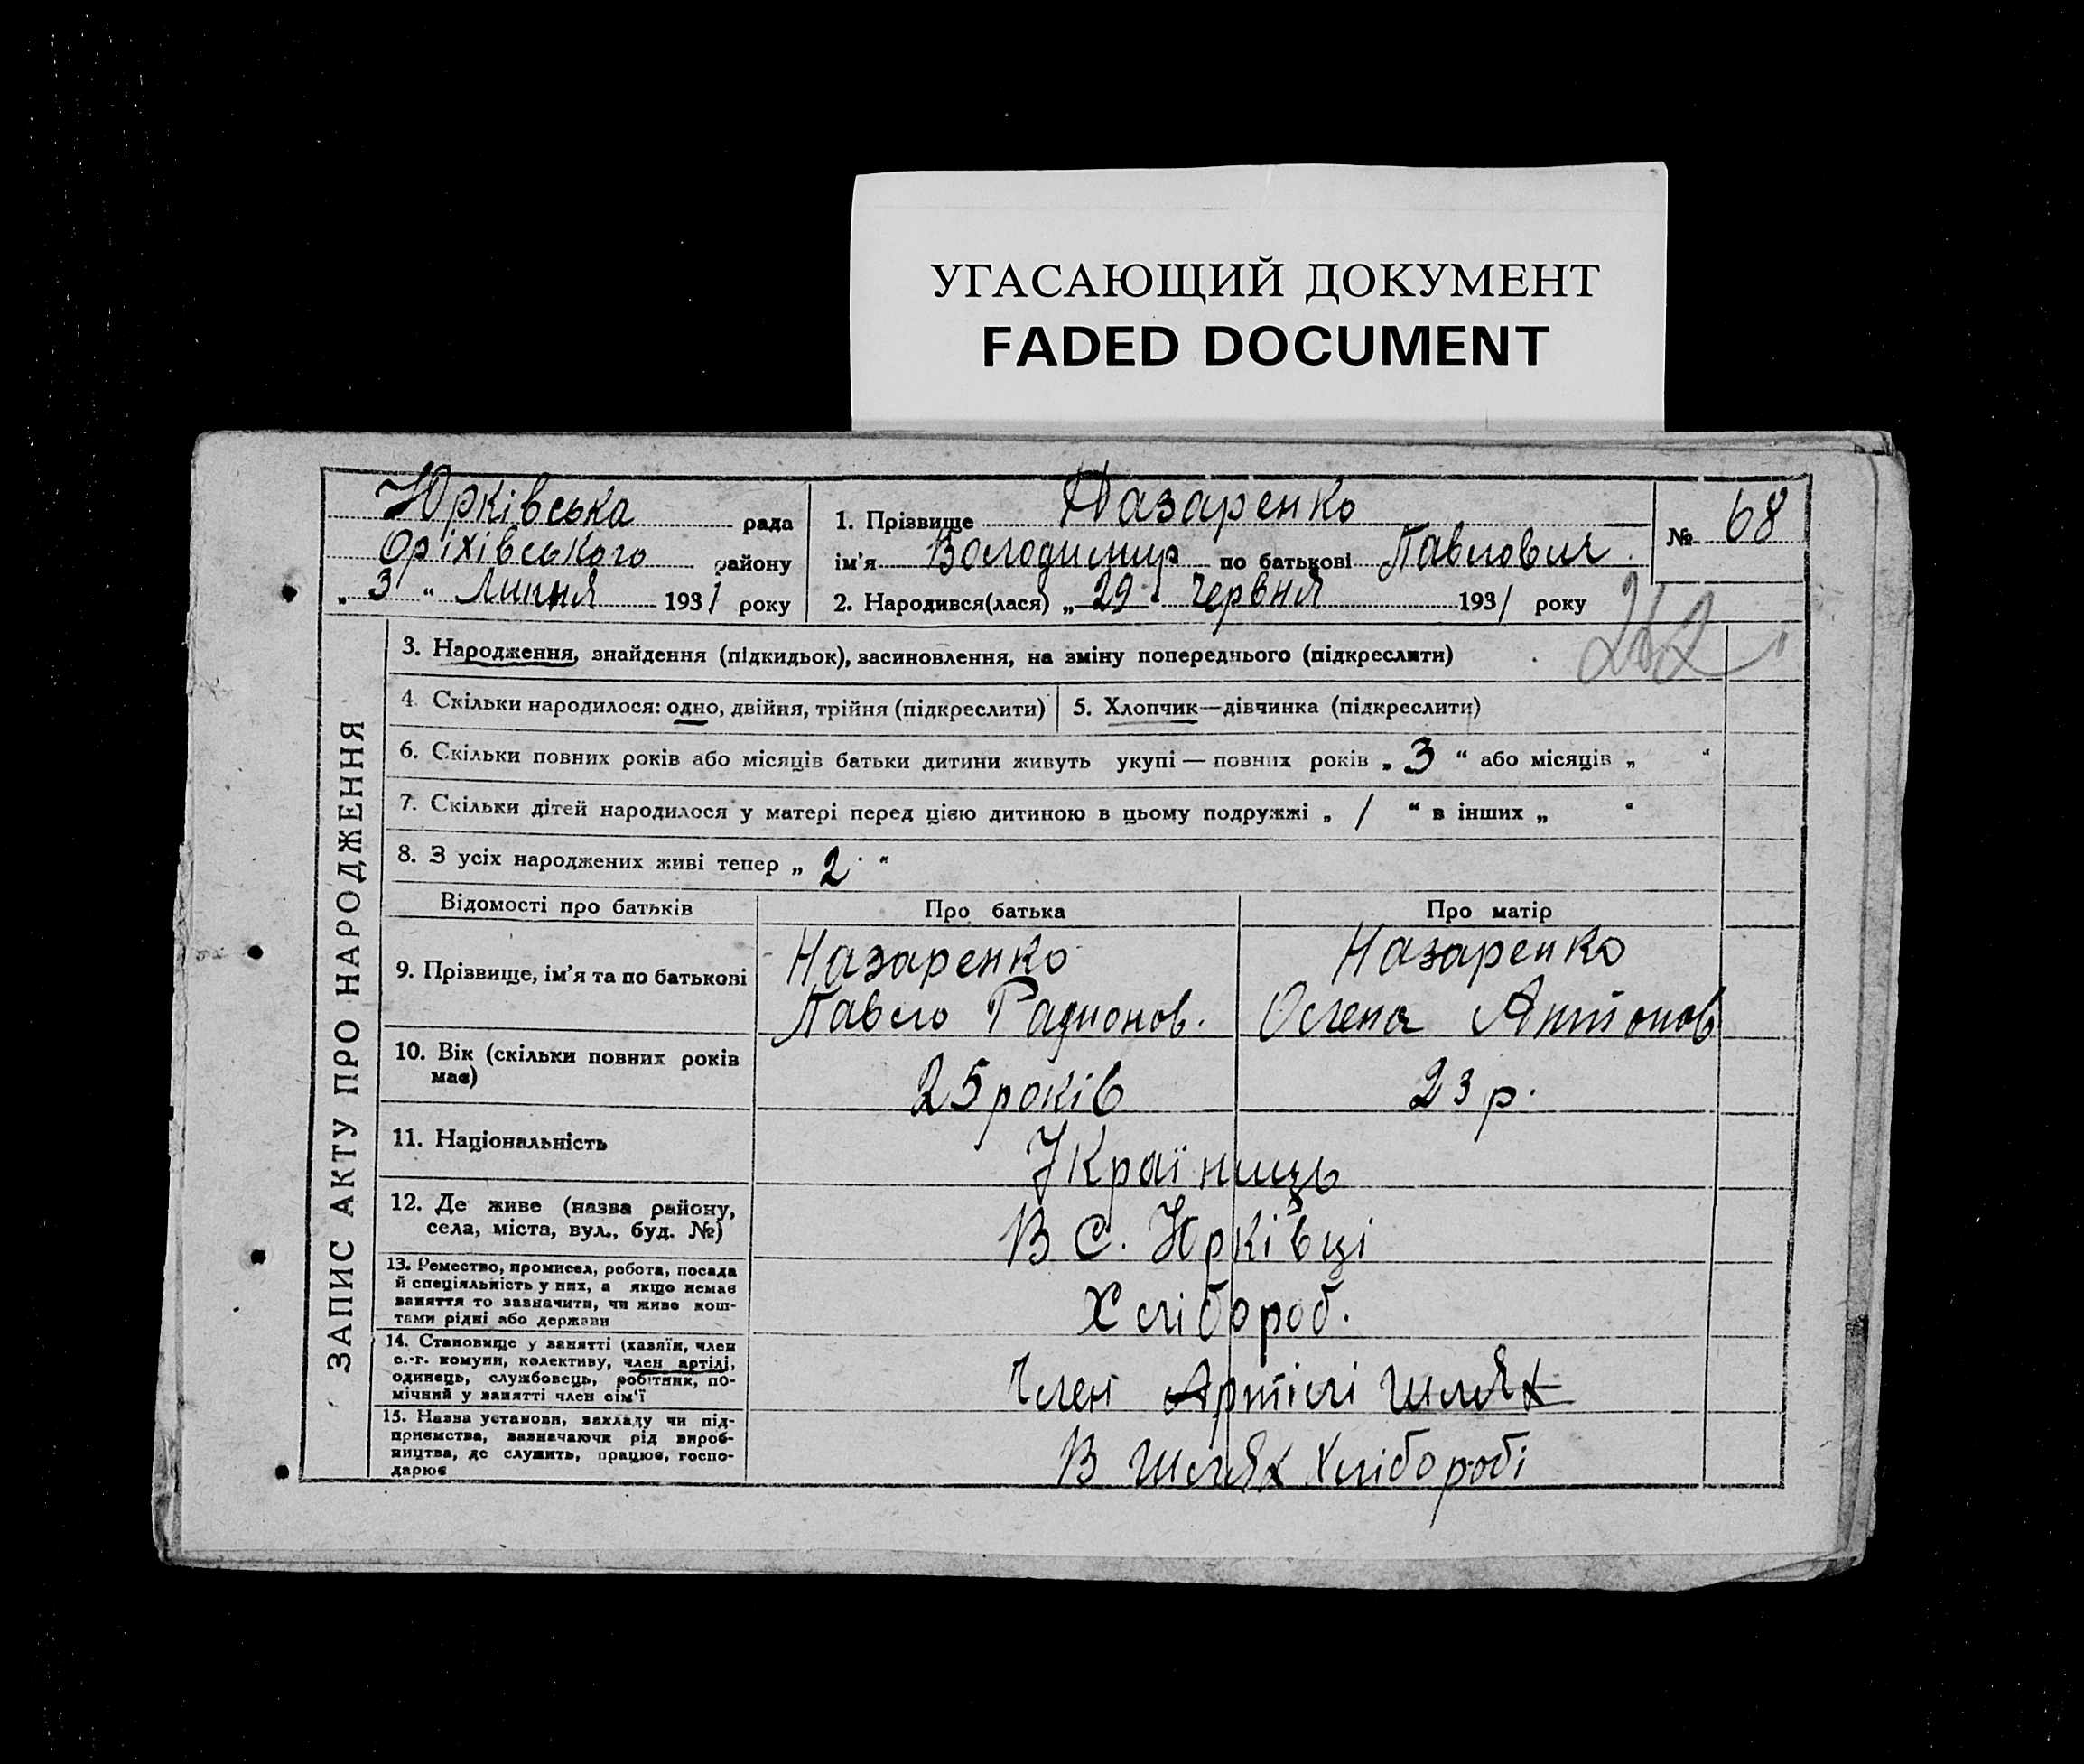 УГАСАЮЩИЙ ДОКУМЕНТ
FADED DOCUMENT
Юрківська рада
Оріхівського району
„ 3 “ Липня 1931 року
1. Прізвище Назаренко
ім'я Володимир по батькові Павлович.
2. Народився(лася) „ 29 “ Червня 1931 року
№ 68
ЗАПИС АКТУ ПРО НАРОДЖЕННЯ
3. Народження, знайдення (підкидьок), засиновлення, на зміну попереднього (підкреслити)
4. Скільки народилося: одно, двійня, трійня (підкреслити)
5. Хлопчик—дівчинка (підкреслити)
6. Скільки повних років або місяців батьки дитини живуть укупі — повних років „ 3 “ або місяців „ “
7. Скільки дітей народилося у матері перед цією дитиною в цьому подружжі „ 1 “ в інших „ “
8. З усіх народжених живі тепер „ 2 “
Відомості про батьків
Про батька
Про матір
9. Прізвище, ім'я та по батькові
Назаренко
Павло Радионов.
Назаренко
Олена Антонов
10. Вік (скільки повних років
має)
25 років
23 р.
11. Національність
Україниць
12. Де живе (назва району,
села, міста, вул., буд. №)
В С. Юрківці
13. Ремество, промисел, робота, посада
й спеціяльність у них, а якщо немає
заняття то зазначити, чи живе кош-
тами рідні або держави
Хлібороб.
14. Становище у занятті (хазяїн, член
с.-г. комуни, колективу, член артілі,
одинець, службовець, робітник, по-
мічний у занятті член сім'ї
Член Артілі Шлях
15. Назва установи, закладу чи під-
приємства, зазначаючи рід вироб-
ництва, де служить, працює, госпо-
дарює
В Шлях Хлібороbі